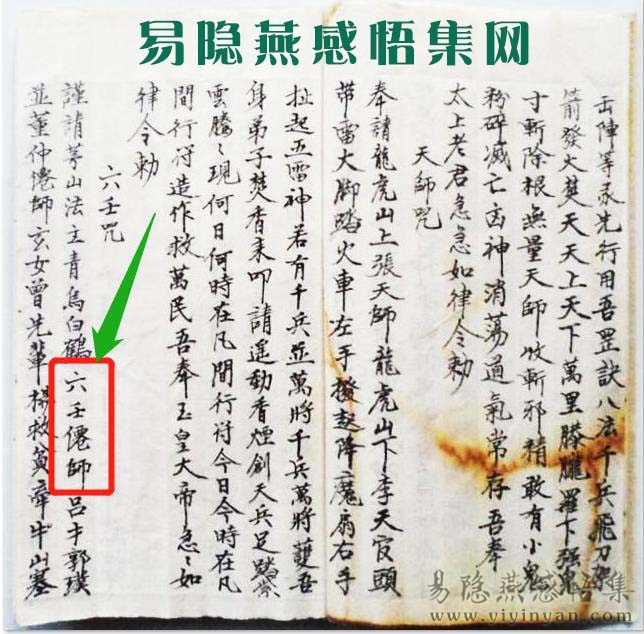 易隐燕感悟集网
缶陣等衆先行用吾罡訣八法千兵飛刀架
箭發火焚天天上天下萬里朦朧羅下強鬼
寸斬除根無量天師收斬邪精敢有小鬼
粉碎滅亡凶神消蕩通氣常存吾奉
太上老君急急如律令勅
天師咒
奉請龍虎山上張天師龍虎山下李天官頭
带雷大脚踏火車左手撥起降魔扇右手
扯起五雷神若有千兵並萬將千兵萬將雙吾
身弟子焚香来叩請遥動香煙創天兵足踏紫
雲騰〻現何日何時在凡間行符今日今時在凡
間行符造作救萬民吾奉玉皇大帝急〻如
律令勅
六壬咒
謹請茅山法主青烏白鶴六壬僊師吕才郭璞
並董仲僊師玄女曾先輩楊救貧牽牛山墓
易隐燕感悟集
www.yiyinyan.com